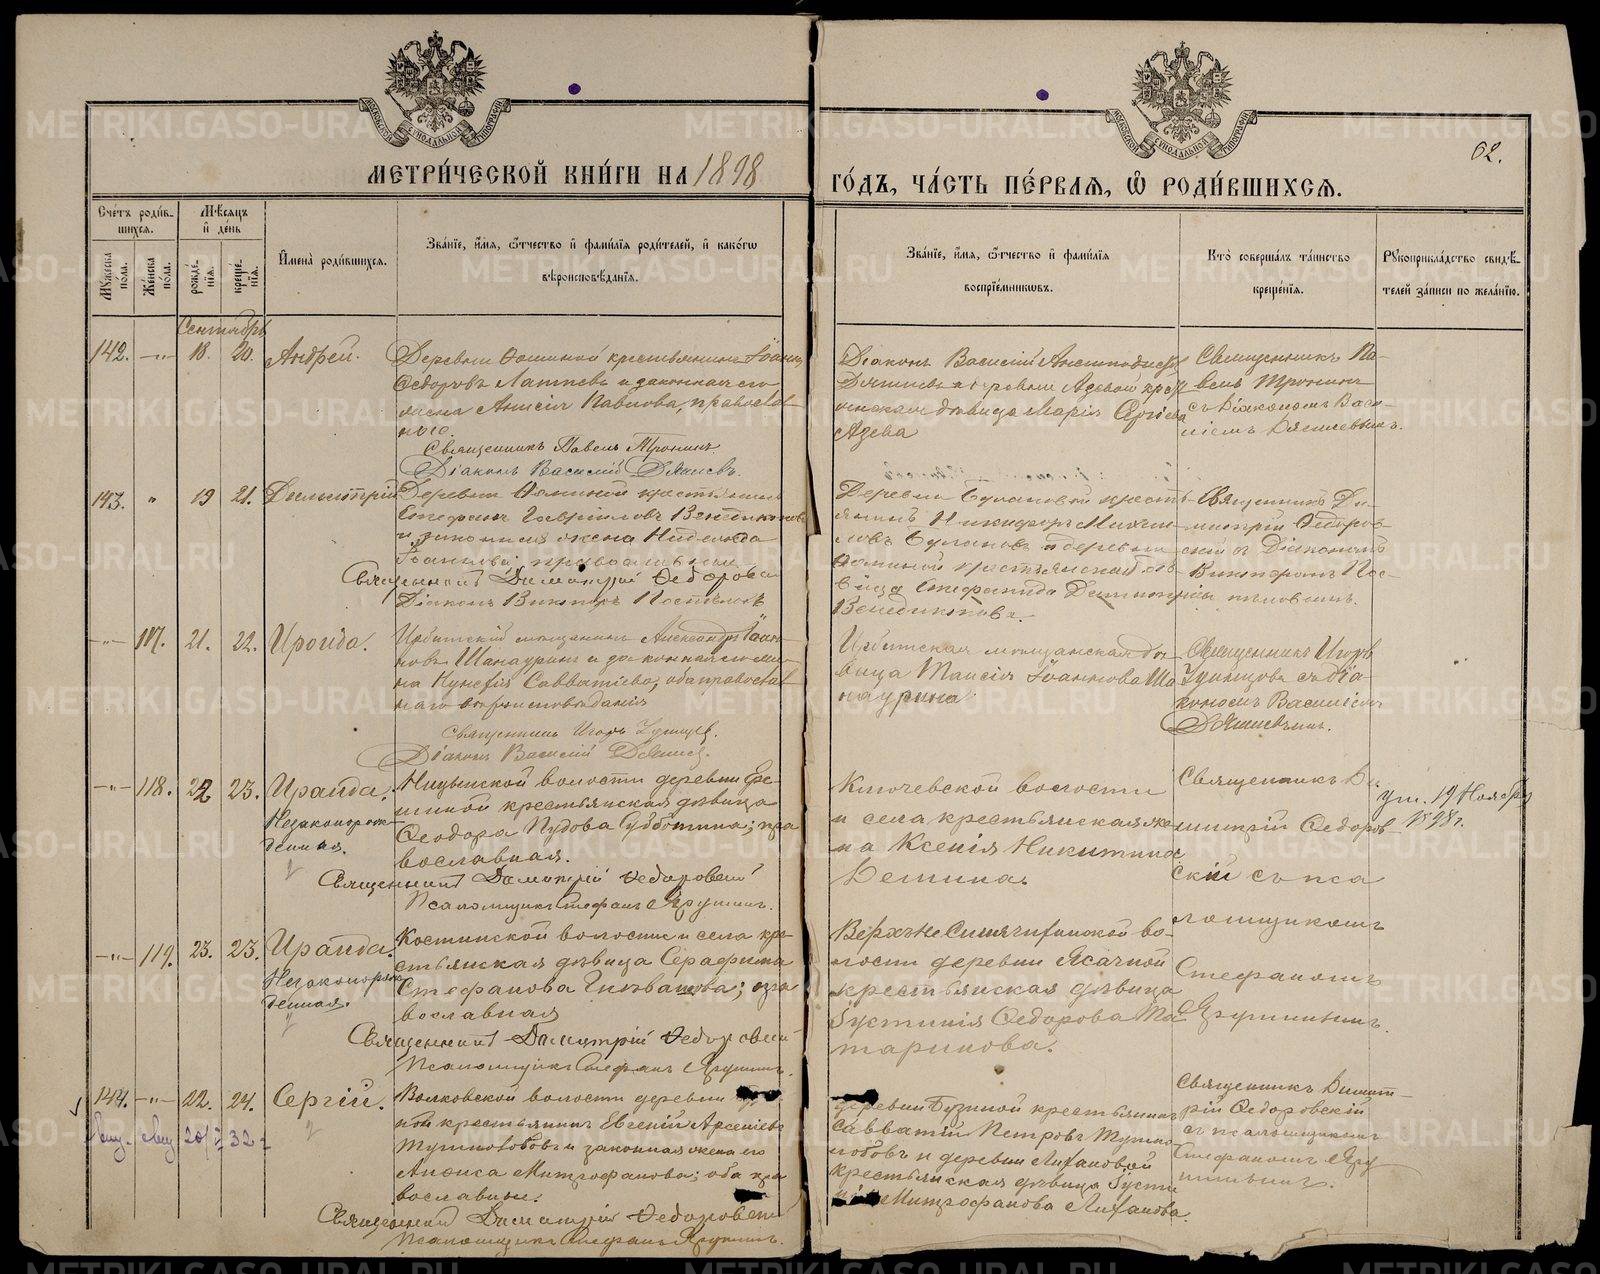 МЕТРИ́ЧЕСКОЙ КНИ́ГИ НА 1898
ГО́ДЪ, ЧА́СТЬ ПЕ́РВАЯ, Ѽ РОДИ́ВШИХСЯ.
62.
Сче́тъ роди́в-
шихся.
Мѣ́сяцъ
и҆ де́нь
Мꙋжеска
пола.
Женска
пола.
рожде́-
нїѧ.
креще́-
нїѧ.
И҆мена̀ роди́вшихся.
Зва́нїе, и҆́мѧ, ѻ҆́тчество и҆ фами́лїѧ роди́телей, и҆ како́гѡ
вѣроисповѣ́данїѧ.
Зва́нїе, и҆́мѧ, ѻ҆́тчество и҆ фами́лїѧ
воспрїе́мникѡвъ.
Кто̀ соверша́лъ та́инство
креще́нїѧ.
Рꙋкоприкла́дство свидѣ́-
телей за́писи по жела́нїю.
Сентябрь
142. —„— 18. 20. Андрей.
Деревни Фоминой крестьянинъ Іоаннъ
Ѳедоровъ Лаптевъ и законная его
жена Анисія Павлова, православ-
наго.
Священникъ Павелъ Тронинъ
Діаконъ Василій
Діаконъ Василій
и деревни Азевой крес
дѣвица Марія Сергіева
Азева
Священникъ Па-
велъ Тронинъ
съ діакономъ Васи-
ліемъ
143. „ 19 21. Димитрій
Деревни Фоминой крестьянинъ
Стефанъ Гавріиловъ
и законная жена Надежда
православные
Священникъ Димитрій Ѳедоровскій
Діаконъ Викторъ
Деревни Булановой кресть-
янинъ Никифоръ Михаи-
ловъ Булановъ и деревни
Фоминой крестьянская дѣ-
вица Стефанида Димитріева
Венедиктова.
Священникъ Ди-
митрій Ѳедоров-
скій съ Діакономъ
Викторомъ Пос-
пѣловымъ.
—„— 117. 21. 22. Ираида.
Ирбитскій мѣщанинъ Александръ Іоан-
новъ Шанауринъ и законная его же-
на Савватіева, оба православ-
наго вѣроисповѣданія
Священникъ Игорь
Діаконъ Василій
Ирбитская мѣщанская дѣ-
вица Таисія Іоаннова Ша-
наурина
Священникъ Игорь
съ діа-
кономъ Василіемъ
—„— 118. 22 23. Ираида.
Незаконорож-
денная.
Ницынской волости деревни Ере-
миной крестьянская дѣвица
Ѳеодора Пудова Субботина; пра
вославная.
Священникъ Димитрій Ѳедоровскій
Псаломщикъ Стефанъ Ярушинъ.
Ключевской волости
и села крестьянская же-
на Ксенія Никитина
Демина.
Священникъ Ди-
митрій Ѳедоров
скій съ пса
ломщикомъ
ум. 19 Ноября
1898 г.
—„— 119. 23. 23. Ираида.
Незаконорож
денная.
Костинской волости и села кре-
стьянская дѣвица Серафима
Стефанова Голованова; пра
вославная
Священникъ Димитрій Ѳедоровскій
Псаломщикъ Стефанъ Ярушинъ.
Верхне Синячихинской во-
лости деревни Ясачной
крестьянская дѣвица
Іустинія Ѳедорова Та-
таринова.
Стефаномъ
Ярушинымъ.
144. —„— 22. 24. Сергій.
Волковской волости деревни
ной крестьянинъ Евгеній Арсеніевъ
и законная жена его
Анфиса Митрофанова; оба пра
вославные.
Священникъ Димитрій Ѳедоровскій
Псаломщикъ Стефанъ Ярушинъ.
деревни Бузиной крестьянинъ
Савватій Петровъ
и деревни Лихановой
крестьянская дѣвица Іусти
Митрофанова Лиханова.
Священникъ Димит-
рій Ѳедоровскій
съ псаломщикомъ
Стефаномъ Яру
шинымъ.
METRIKI.GASO-URAL.RU